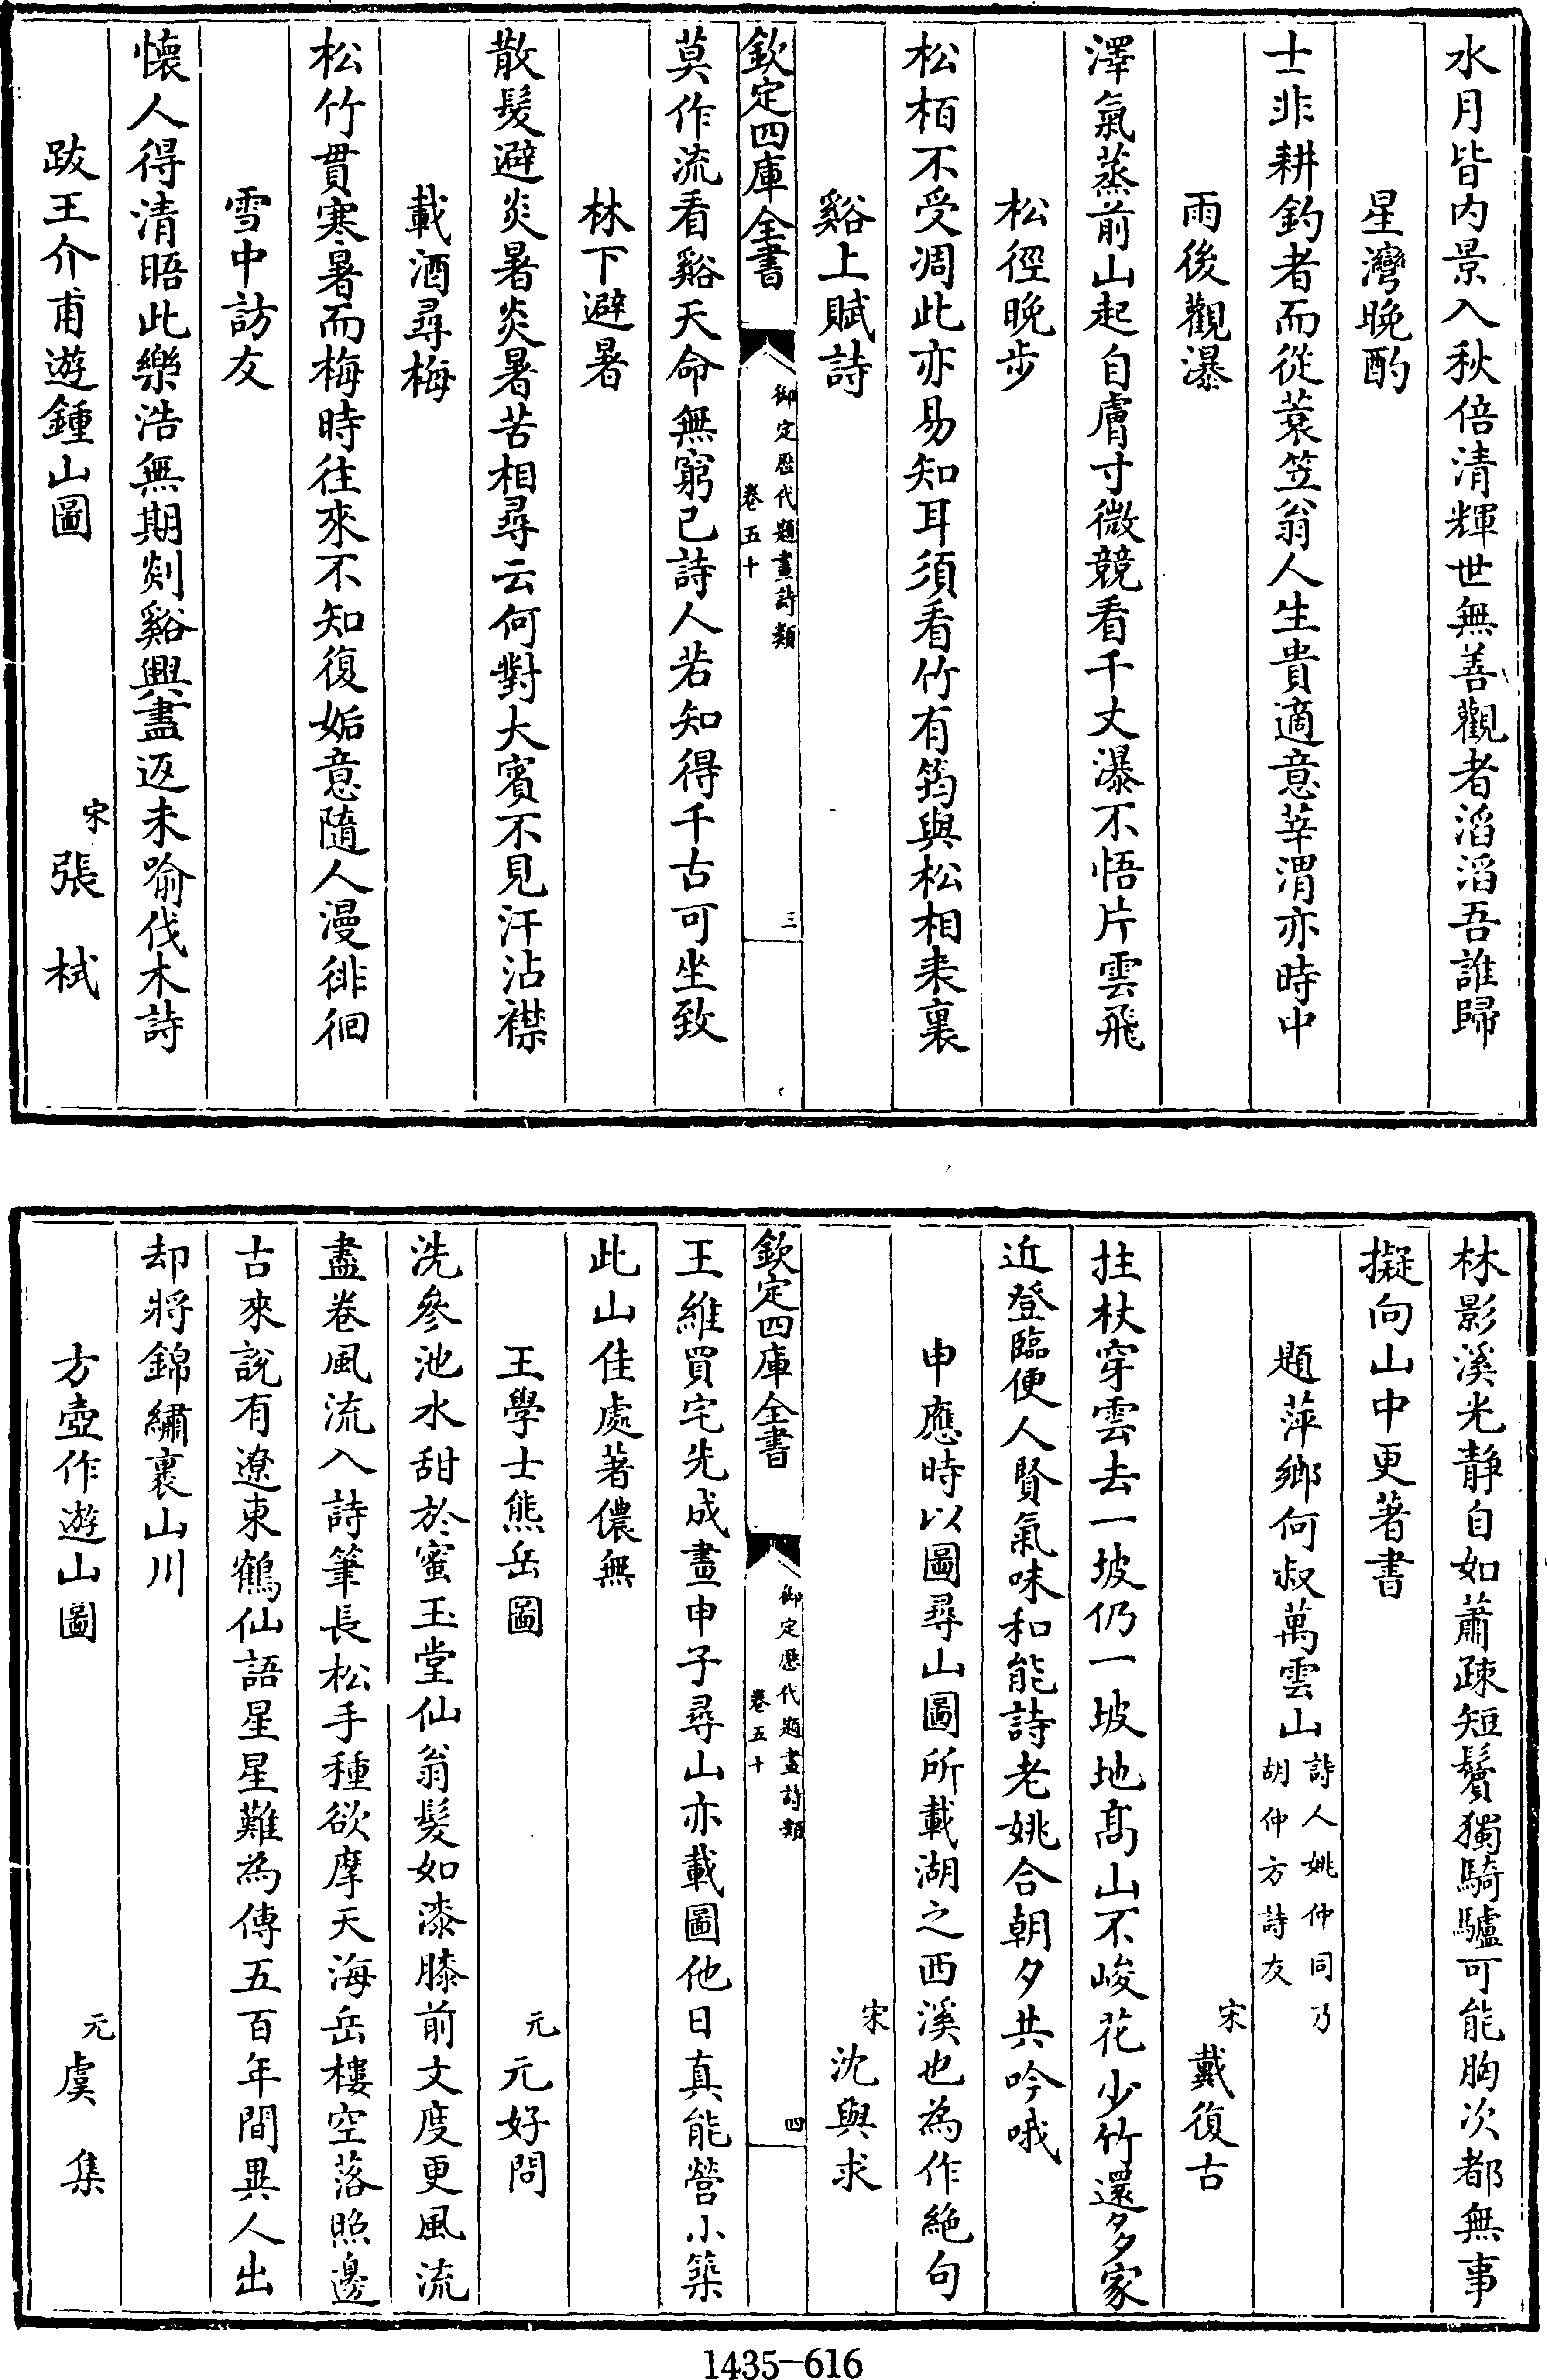 水月皆内景入秋倍清輝世無善觀者滔滔吾誰歸
星灣晚酌
士非耕釣者而從蓑笠翁人生貴適意莘渭亦時中
雨後觀瀑
澤氣蒸前山起自膚寸微競看千丈瀑不悟片雲飛
松徑晚步
松栢不受凋此亦易知耳須看竹有筠與松相表裏
谿上賦詩
欽定四庫全書
御定歴代題畫詩類
卷五十
三
莫作流看谿天命無窮已詩人若知得千古可坐致
林下避暑
散髮避炎暑炎暑苦相尋云何對大賓不見汗沾襟
載酒尋梅
松竹貫寒暑而梅時往來不知復姤意隨人漫徘徊
雪中訪友
懐人得清晤此樂浩無期剡谿興盡返未喻伐木詩
跋王介甫遊鍾山圖
宋張栻
林影溪光静自如蕭疎短鬢獨騎驢可能胸次都無事
擬向山中更著書
題萍鄉何叔萬雲山詩人姚仲同乃
胡仲方詩友
宋戴復古
拄杖穿雲去一坡仍一坡地髙山不峻花少竹還多家
近登臨便人賢氣味和能詩老姚合朝夕共吟哦
申應時以圖尋山圖所載湖之西溪也為作絶句
宋沈與求
欽定四庫全書
御定歴代題畫詩類
卷五十
四
王維買宅先成畫申子尋山亦載圖他日真能營小築
此山佳處著儂無
王學士熊岳圖
元元好問
洗參池水甜於蜜玉堂仙翁髮如漆膝前文度更風流
盡卷風流入詩筆長松手種欲摩天海岳樓空落照邊
古來說有遼東鶴仙語星星難為傳五百年間異人出
却將錦繡裹山川
方壺作遊山圖
元虞集
1435-616